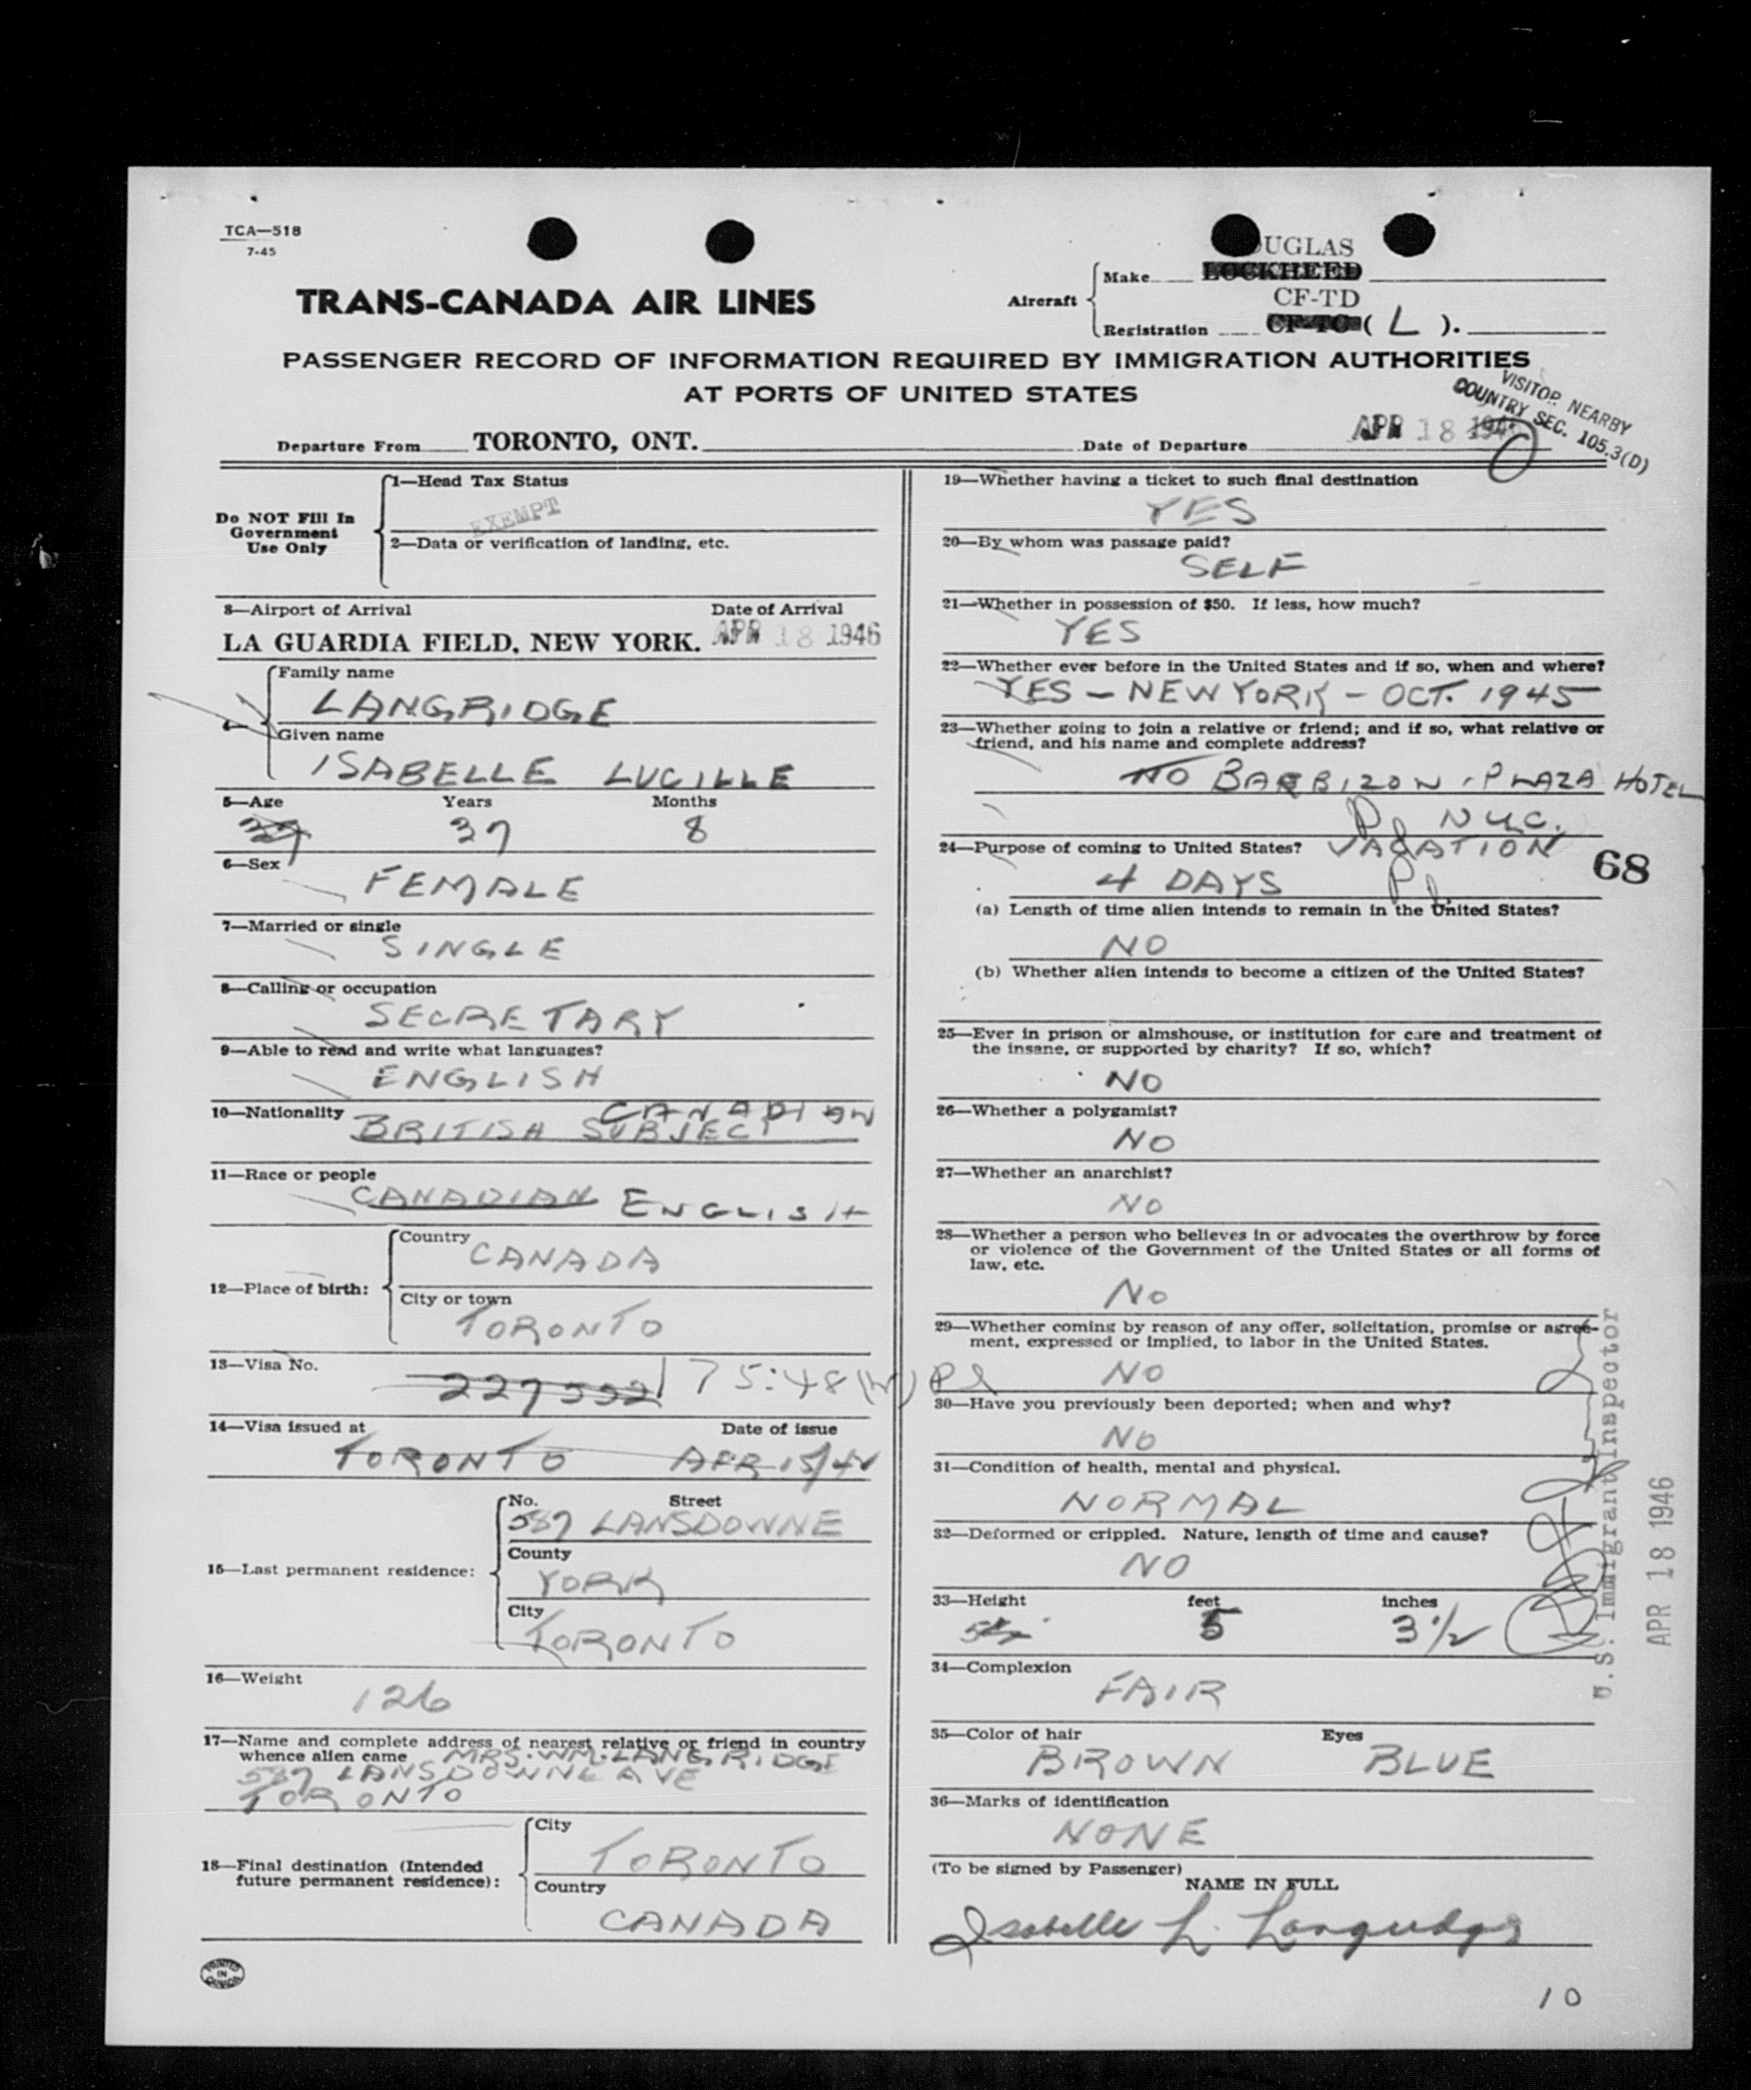 TCA—518
7-45
TRANS-CANADA AIR LINES
Aircraft
Make
UGLAS
LOCKHEED
CF-TD
Registration
CF-TC ( L ).
PASSENGER RECORD OF INFORMATION REQUIRED BY IMMIGRATION AUTHORITIES
AT PORTS OF UNITED STATES
VISITOR NEARBY
COUNTRY SEC. 105.3(D)
Departure From TORONTO, ONT.
Date of Departure APR 18 1946
Do NOT Fill In
Government
Use Only
1—Head Tax Status
EXEMPT
2—Data or verification of landing, etc.
3—Airport of Arrival Date of Arrival
LA GUARDIA FIELD, NEW YORK. APR 18 1946
4—
Family name
LANGRIDGE
Given name
ISABELLE LUCILLE
5—Age Years Months
37 37 8
6—Sex
FEMALE
7—Married or single
SINGLE
8—Calling or occupation
SECRETARY
9—Able to read and write what languages?
ENGLISH
10—Nationality
CANADIAN
BRITISH SUBJECT
11—Race or people
CANADIAN ENGLISH
12—Place of birth:
Country
CANADA
City or town
TORONTO
13—Visa No.
227552 175:48(W)
14—Visa issued at Date of issue
TORONTO APR 15/46
15—Last permanent residence:
No. Street
587 LANSDOWNE
County
YORK
City
TORONTO
16—Weight
126
17—Name and complete address of nearest relative or friend in country
whence alien came MRS. WM. LANGRIDGE
587 LANSDOWNE AVE
TORONTO
18—Final destination (Intended
future permanent residence):
City
TORONTO
Country
CANADA
PRINTED
IN
CANADA
19—Whether having a ticket to such final destination
YES
20—By whom was passage paid?
SELF
21—Whether in possession of $50. If less, how much?
YES
22—Whether ever before in the United States and if so, when and where?
YES – NEW YORK – OCT. 1945
23—Whether going to join a relative or friend; and if so, what relative or
friend, and his name and complete address?
NO BARBIZON - PLAZA HOTEL
N.Y.C.
24—Purpose of coming to United States? VACATION
68
4 DAYS
(a) Length of time alien intends to remain in the United States?
NO
(b) Whether alien intends to become a citizen of the United States?
25—Ever in prison or almshouse, or institution for care and treatment of
the insane, or supported by charity? If so, which?
NO
26—Whether a polygamist?
NO
27—Whether an anarchist?
NO
28—Whether a person who believes in or advocates the overthrow by force
or violence of the Government of the United States or all forms of
law, etc.
NO
29—Whether coming by reason of any offer, solicitation, promise or agree-
ment, expressed or implied, to labor in the United States.
NO
30—Have you previously been deported; when and why?
NO
31—Condition of health, mental and physical.
NORMAL
32—Deformed or crippled. Nature, length of time and cause?
NO
33—Height feet inches
5 3 1/2
34—Complexion
FAIR
35—Color of hair Eyes
BROWN BLUE
36—Marks of identification
NONE
(To be signed by Passenger)
NAME IN FULL
Isabelle L. Langridge
U.S. Immigrant Inspector
APR 18 1946
10